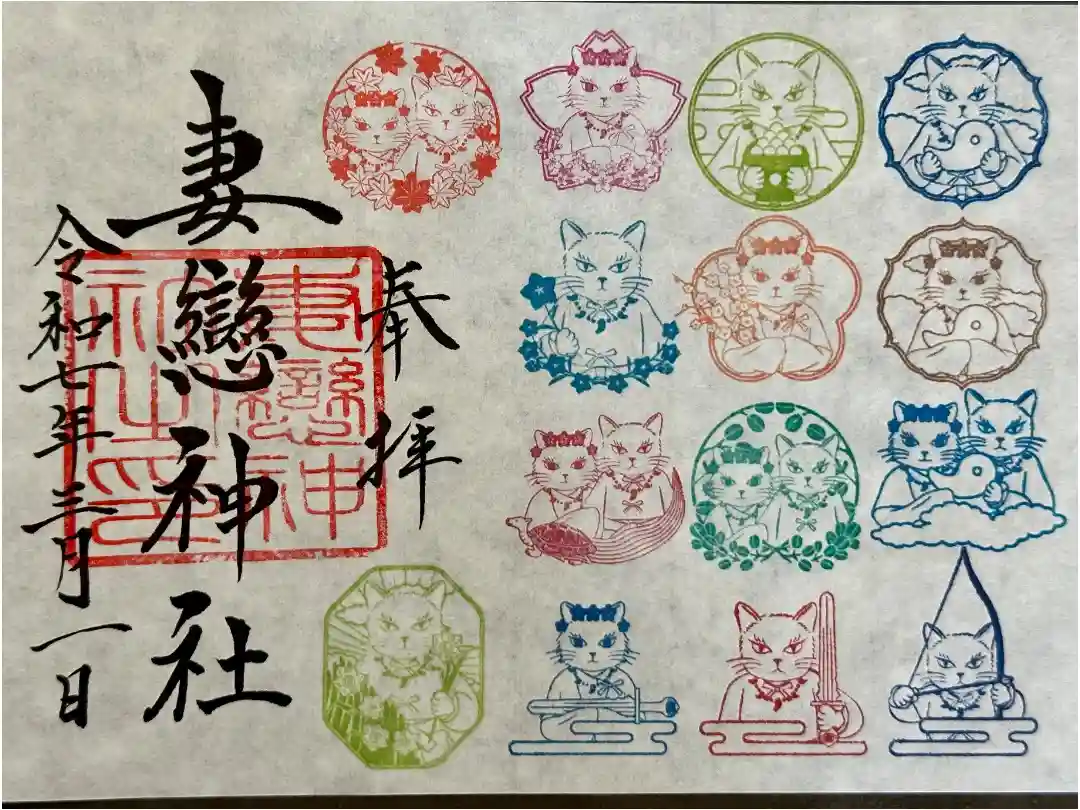 奉拝
妻戀神社
妻戀神
社之印
令和七年三月一日